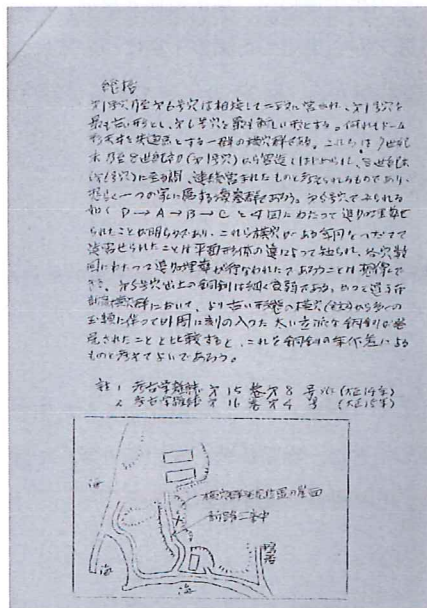 総括
第1号穴乃至第6号穴は相接して一斉に営まれ、第1号穴を
最も古い形とし、第6号穴を最も新しい形とする。何れもドーム
形天井を共通点とする一群の横穴群である。これらは7世紀
末乃至8世紀初め(第1号穴)から営造しはじめられ、8世紀末
(第6号穴)に至る間、連続営まれたものと考えられるものであり、
恐らく一つの家に属する墳墓群であろう。第5号穴でみられる
如く D→A→B→C と4回にわたって追加埋葬せ
られたことが明らかであり、これら横穴がある年月をへだてて
造営せられたことは平面形体の違によって知られ、各穴数
回にわたって追加埋葬が行なわれたであろうことは想像でき
る。第5号穴出土の銅釧は細く貧弱である。かつて
横穴群において、より古い形態の横穴から多くの
玉類に伴って外周に刻の入った太い立派な銅釧が発
見されたことと比較すると、これを銅釧の年代差による
ものと考えてよいであろう。
註 1 考古学雑誌 第15巻第8号 (大正14年)
2 考古学雑誌 第16巻第4号 (大正15年)
海
横穴群発見位置の崖面
新設二宮中
海
海